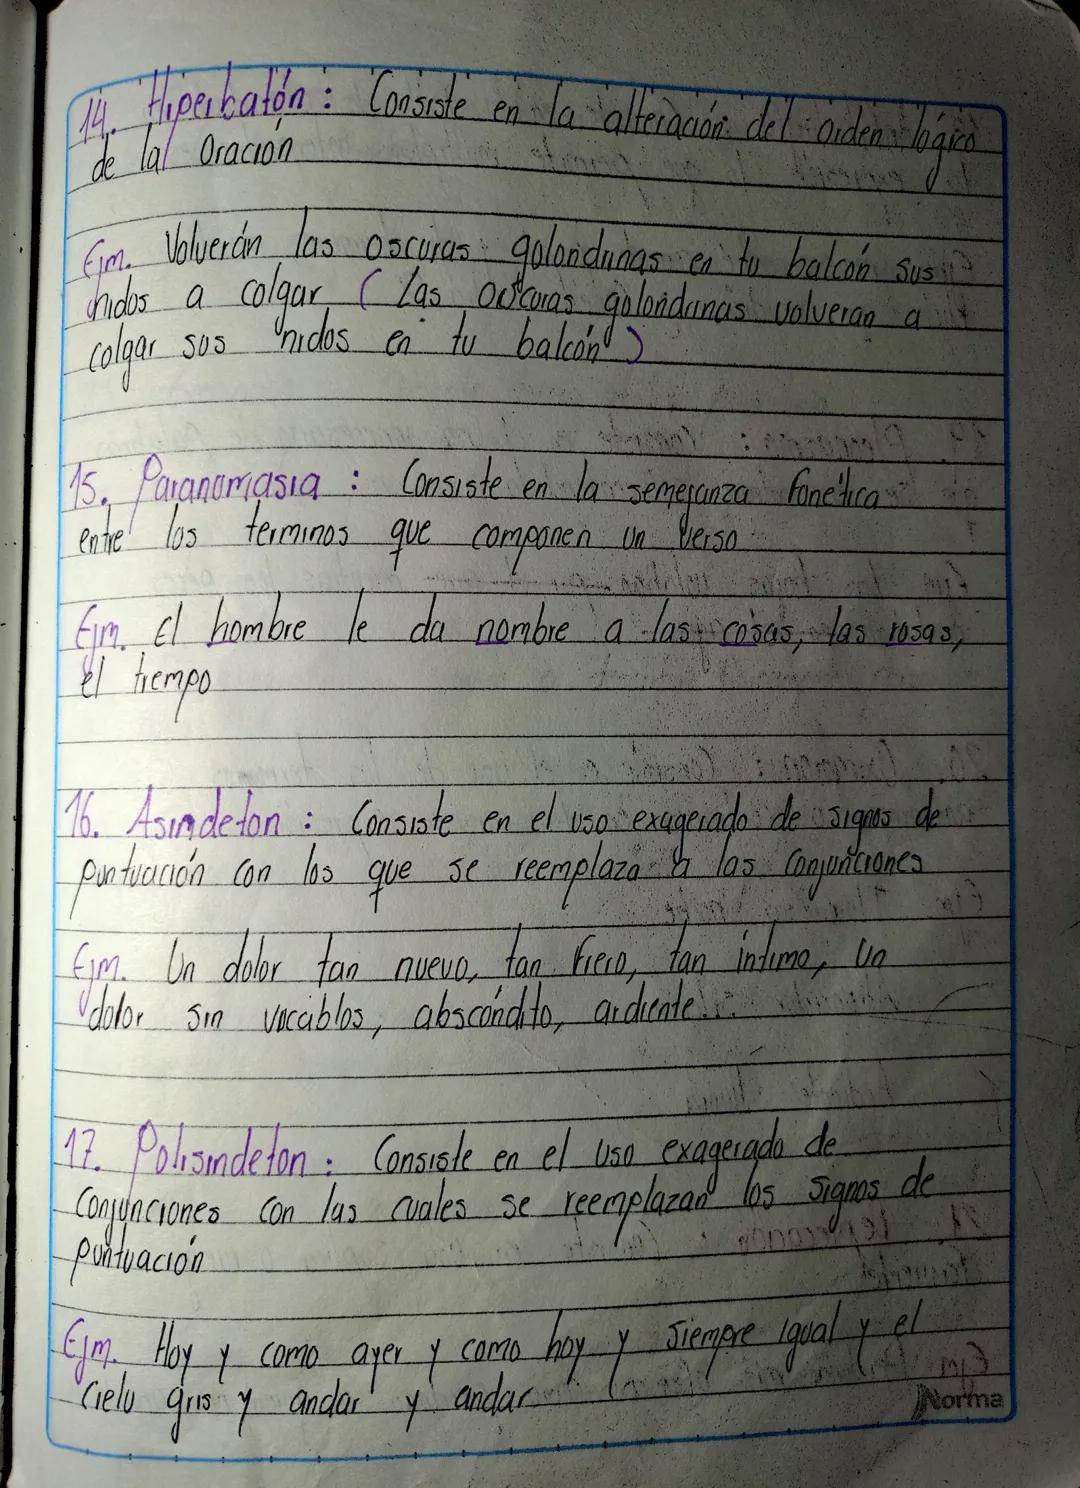 14. Hiperbatón : Consiste en la alteración del orden lógico
de la Oración
Ejm. Volverán las oscuras golondrinas en tu balcón sus
nidos a colgar ( Las oscuras golondrinas volveran a
colgar sus nidos en tu balcón )
15. Paranomasia : Consiste en la semejanza fonética
entre los terminos que componen un verso
Ejm. El hombre le da nombre a las cosas, las rosas,
el tiempo
16. Asindeton : Consiste en el uso exagerado de signos de
puntuación con los que se reemplaza a las conjunciones
Ejm. Un dolor tan nuevo, tan fiero, tan íntimo, Un
dolor sin vocablos, abscóndito, ardiente...
17. Polisindeton : Consiste en el uso exagerado de
Conjunciones con las cuales se reemplazan los signos de
puntuación
Ejm. Hoy y como ayer y como hoy y siempre igual y el
cielo gris y andar y andar
Norma